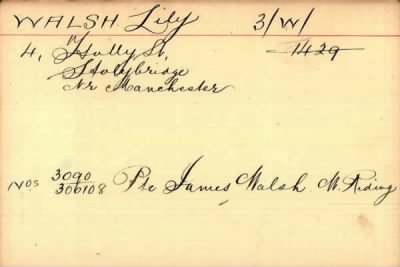 WALSH Lily 3/W/
4, Holly St, 1429
Stalybridge
Nr Manchester
Nos 3090
306108 Pte James Walsh. W. Riding